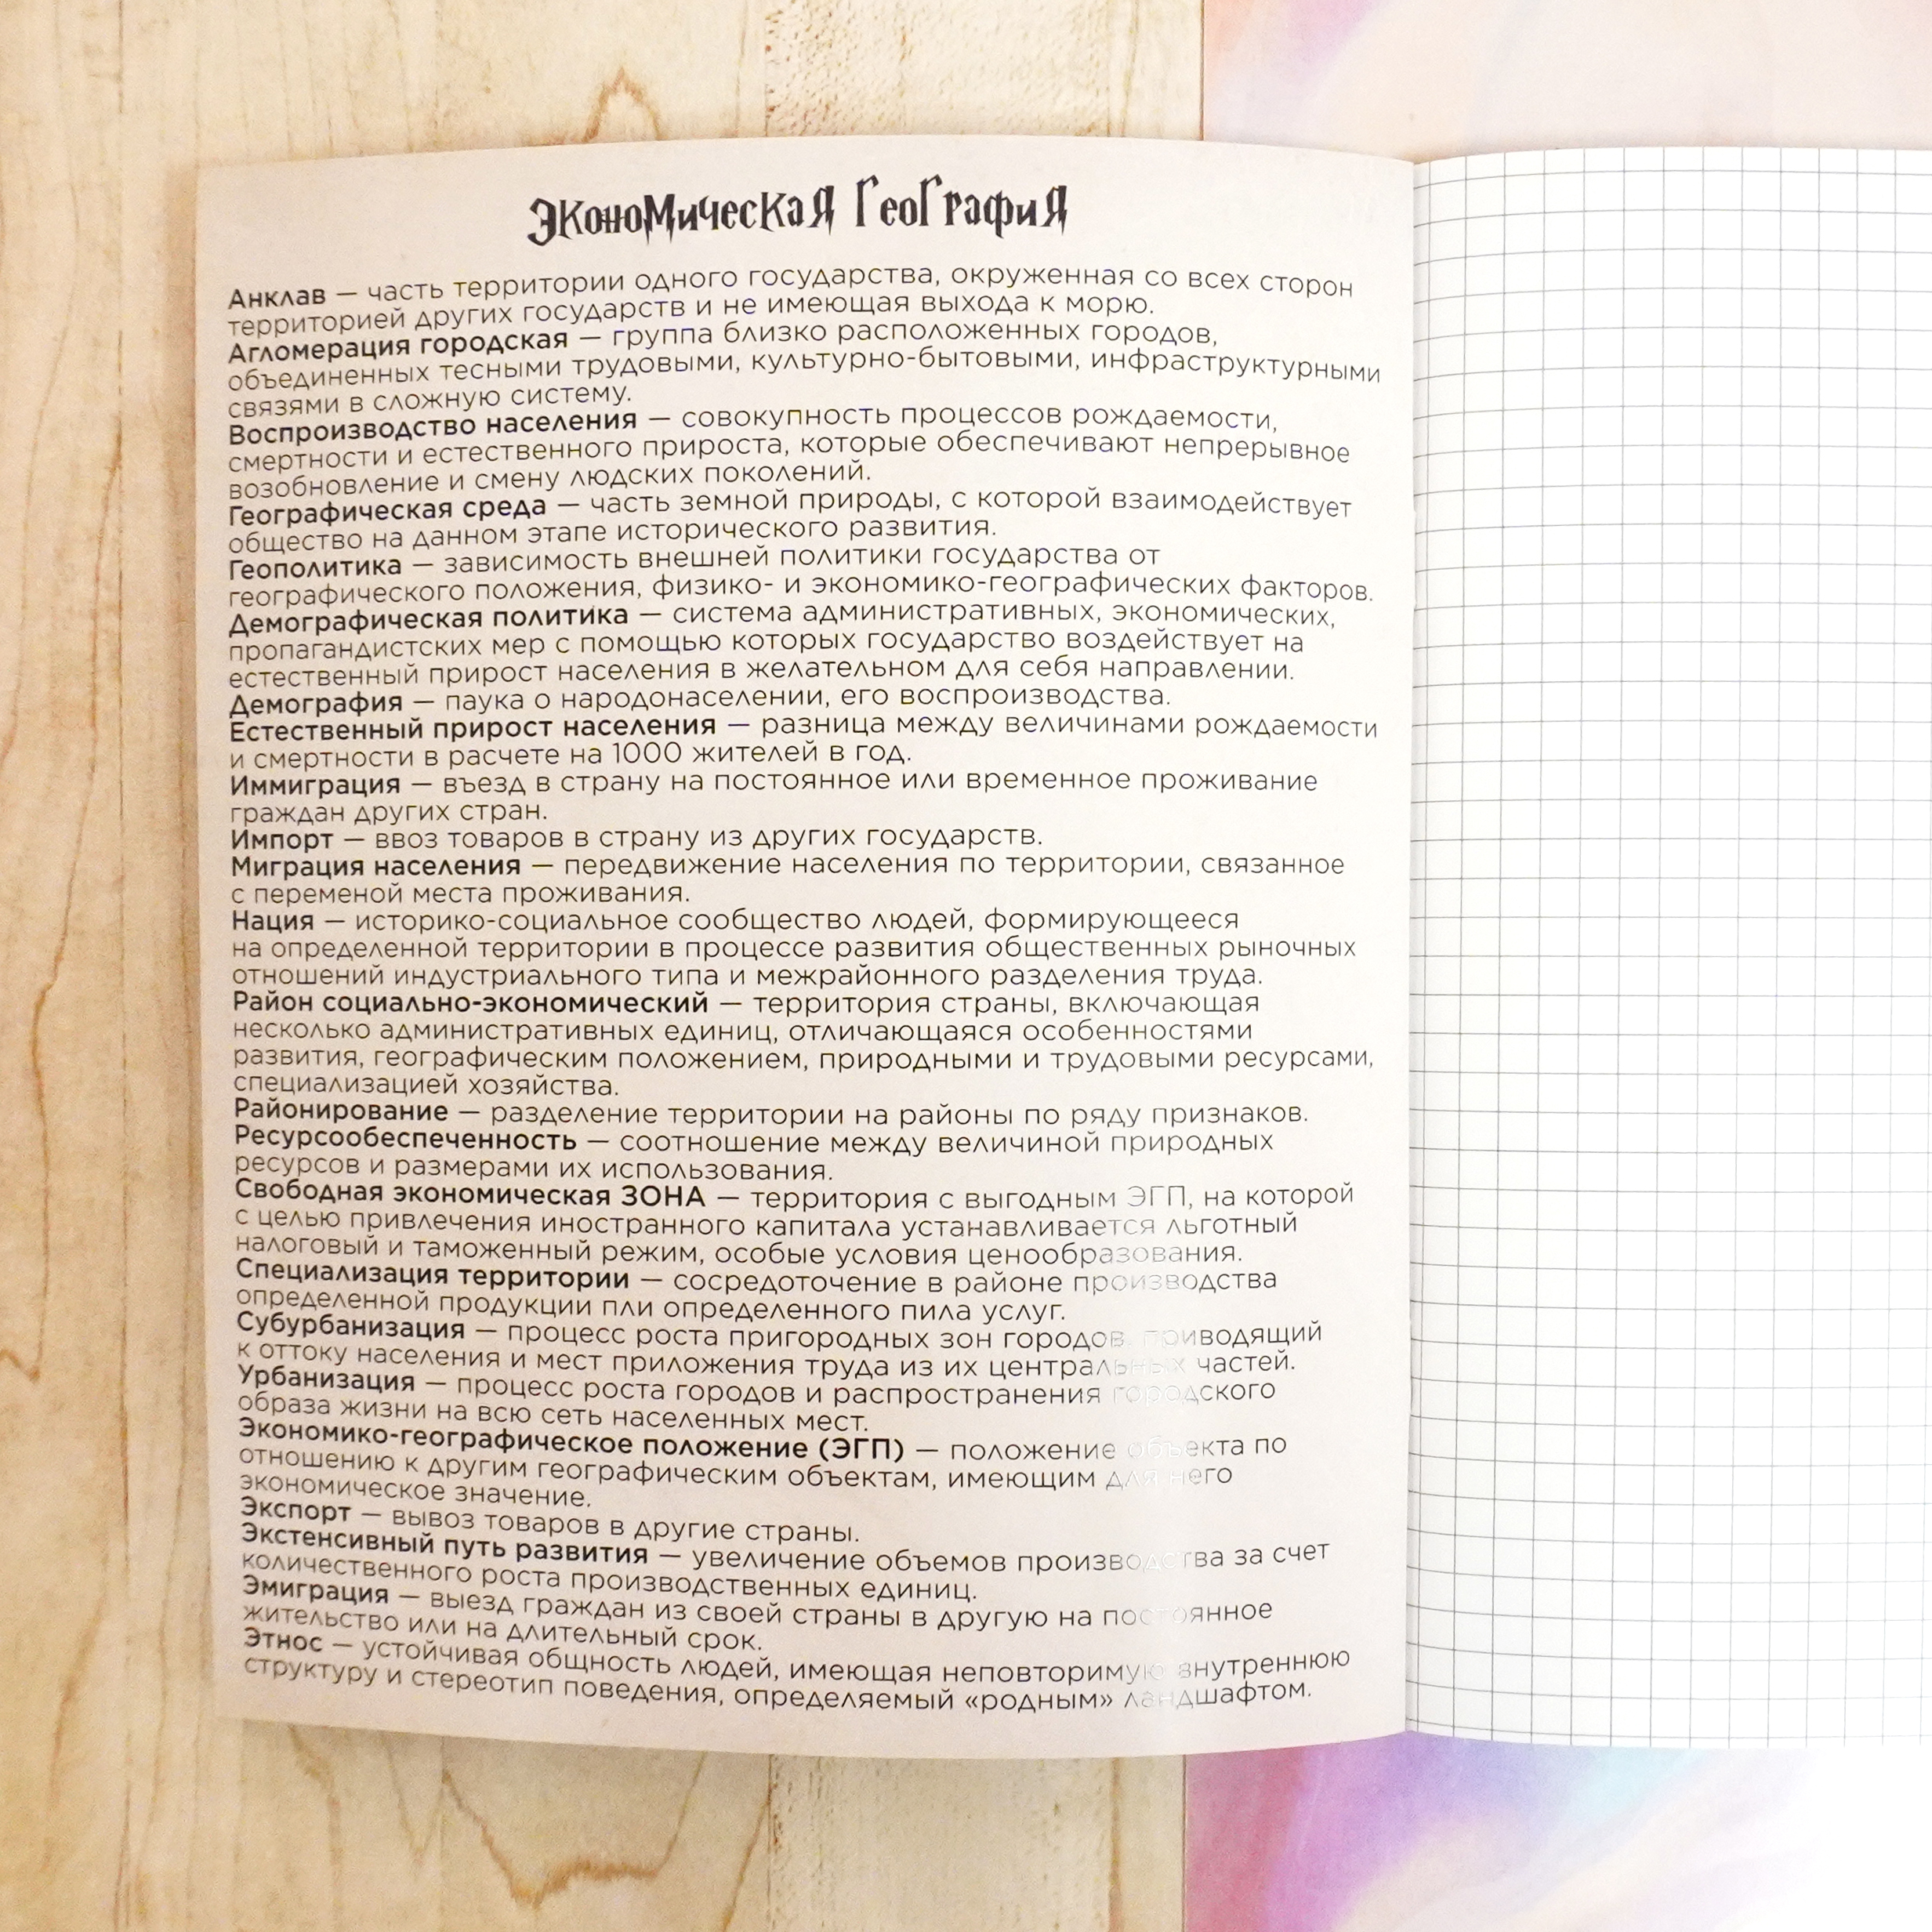 Экономическая География
Анклав — часть территории одного государства, окруженная со всех сторон
территорией других государств и не имеющая выхода к морю.
Агломерация городская — группа близко расположенных городов,
объединенных тесными трудовыми, культурно-бытовыми, инфраструктурными
связями в сложную систему.
Воспроизводство населения — совокупность процессов рождаемости,
смертности и естественного прироста, которые обеспечивают непрерывное
возобновление и смену людских поколений.
Географическая среда — часть земной природы, с которой взаимодействует
общество на данном этапе исторического развития.
Геополитика — зависимость внешней политики государства от
географического положения, физико- и экономико-географических факторов.
Демографическая политика — система административных, экономических,
пропагандистских мер с помощью которых государство воздействует на
естественный прирост населения в желательном для себя направлении.
Демография — паука о народонаселении, его воспроизводства.
Естественный прирост населения — разница между величинами рождаемости
и смертности в расчете на 1000 жителей в год.
Иммиграция — въезд в страну на постоянное или временное проживание
граждан других стран.
Импорт — ввоз товаров в страну из других государств.
Миграция населения — передвижение населения по территории, связанное
с переменой места проживания.
Нация — историко-социальное сообщество людей, формирующееся
на определенной территории в процессе развития общественных рыночных
отношений индустриального типа и межрайонного разделения труда.
Район социально-экономический — территория страны, включающая
несколько административных единиц, отличающаяся особенностями
развития, географическим положением, природными и трудовыми ресурсами,
специализацией хозяйства.
Районирование — разделение территории на районы по ряду признаков.
Ресурсообеспеченность — соотношение между величиной природных
ресурсов и размерами их использования.
Свободная экономическая ЗОНА — территория с выгодным ЭГП, на которой
с целью привлечения иностранного капитала устанавливается льготный
налоговый и таможенный режим, особые условия ценообразования.
Специализация территории — сосредоточение в районе производства
определенной продукции пли определенного пила услуг.
Субурбанизация — процесс роста пригородных зон городов, приводящий
к оттоку населения и мест приложения труда из их центральных частей.
Урбанизация — процесс роста городов и распространения городского
образа жизни на всю сеть населенных мест.
Экономико-географическое положение (ЭГП) — положение объекта по
отношению к другим географическим объектам, имеющим для него
экономическое значение.
Экспорт — вывоз товаров в другие страны.
Экстенсивный путь развития — увеличение объемов производства за счет
количественного роста производственных единиц.
Эмиграция — выезд граждан из своей страны в другую на постоянное
жительство или на длительный срок.
Этнос — устойчивая общность людей, имеющая неповторимую внутреннюю
структуру и стереотип поведения, определяемый «родным» ландшафтом.